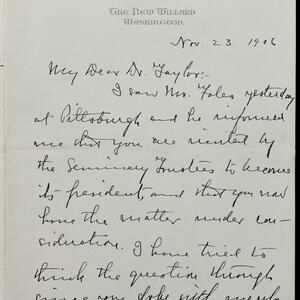 The New Willard
Washington.
Nov. 23. 1906
My Dear Dr. Taylor:-
I saw Mr. Foles yesterday
at Pittsburgh and he informed
me that you are invited by
the Seminary Trustees to become
its president, and that you now
have the matter under con-
sideration. I have tried to
think the question through
since